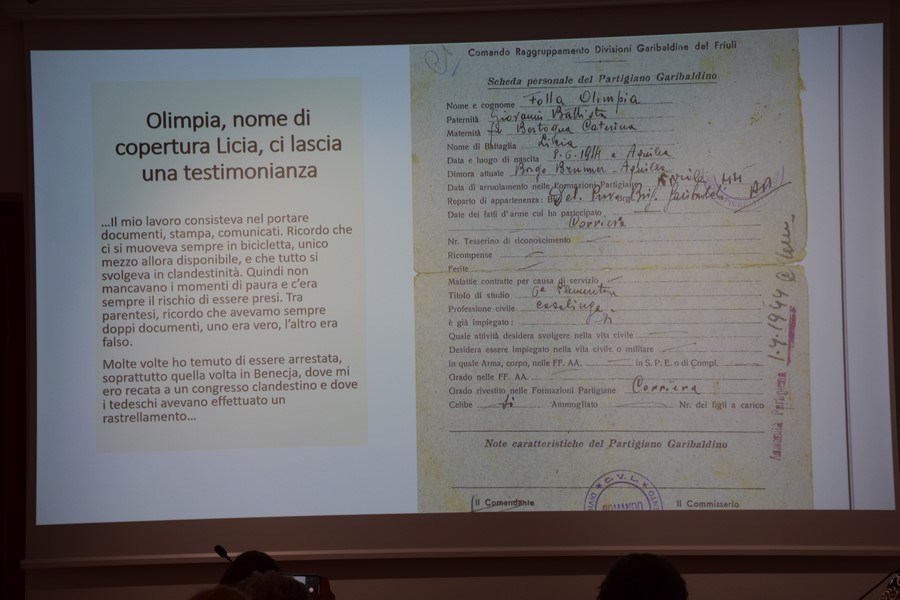 Olimpia, nome di
copertura Licia, ci lascia
una testimonianza
...Il mio lavoro consisteva nel portare
documenti, stampa, comunicati. Ricordo che
ci si muoveva sempre in bicicletta, unico
mezzo allora disponibile, e che tutto si
svolgeva in clandestinità. Quindi non
mancavano i momenti di paura e c'era
sempre il rischio di essere presi. Tra
parentesi, ricordo che avevamo sempre
doppi documenti, uno era vero, l'altro era
falso.
Molte volte ho temuto di essere arrestata,
soprattutto quella volta in Benecja, dove mi
ero recata a un congresso clandestino e dove
i tedeschi avevano effettuato un
rastrellamento...
Comando Raggruppamento Divisioni Garibaldine del Friuli
Scheda personale del Partigiano Garibaldino
Nome e cognome Folla Olimpia
Paternità Giovanni Battista
Maternità Caterina
Nome di Battaglia Licia
Data e luogo di nascita Aquileia
Dimora attuale Borgo Brunner - Aquileia
Data di arruolamento nelle Formazioni Partigiane Aprile
Reparto di appartenenza: Garibaldi
Date dei fatti d'arme cui ha partecipato
Corriera
Nr. Tesserino di riconoscimento
Ricompense
Ferite
Malattie contratte per causa di servizio
Titolo di studio
Professione civile casalinga
è già impiegato:
Quale attività desidera svolgere nella vita civile
Desidera essere impiegato nella vita civile o militare
in quale Arma, corpo, nelle FF. AA. in S. P. E. o di Compl.
Grado nelle FF. AA.
Grado rivestito nelle Formazioni Partigiane Corriera
Celibe si Ammogliato Nr. dei figli a carico
Note caratteristiche del Partigiano Garibaldino
C.V.L.
COMANDO
Il Comandante Il Commissario
1.4.1944